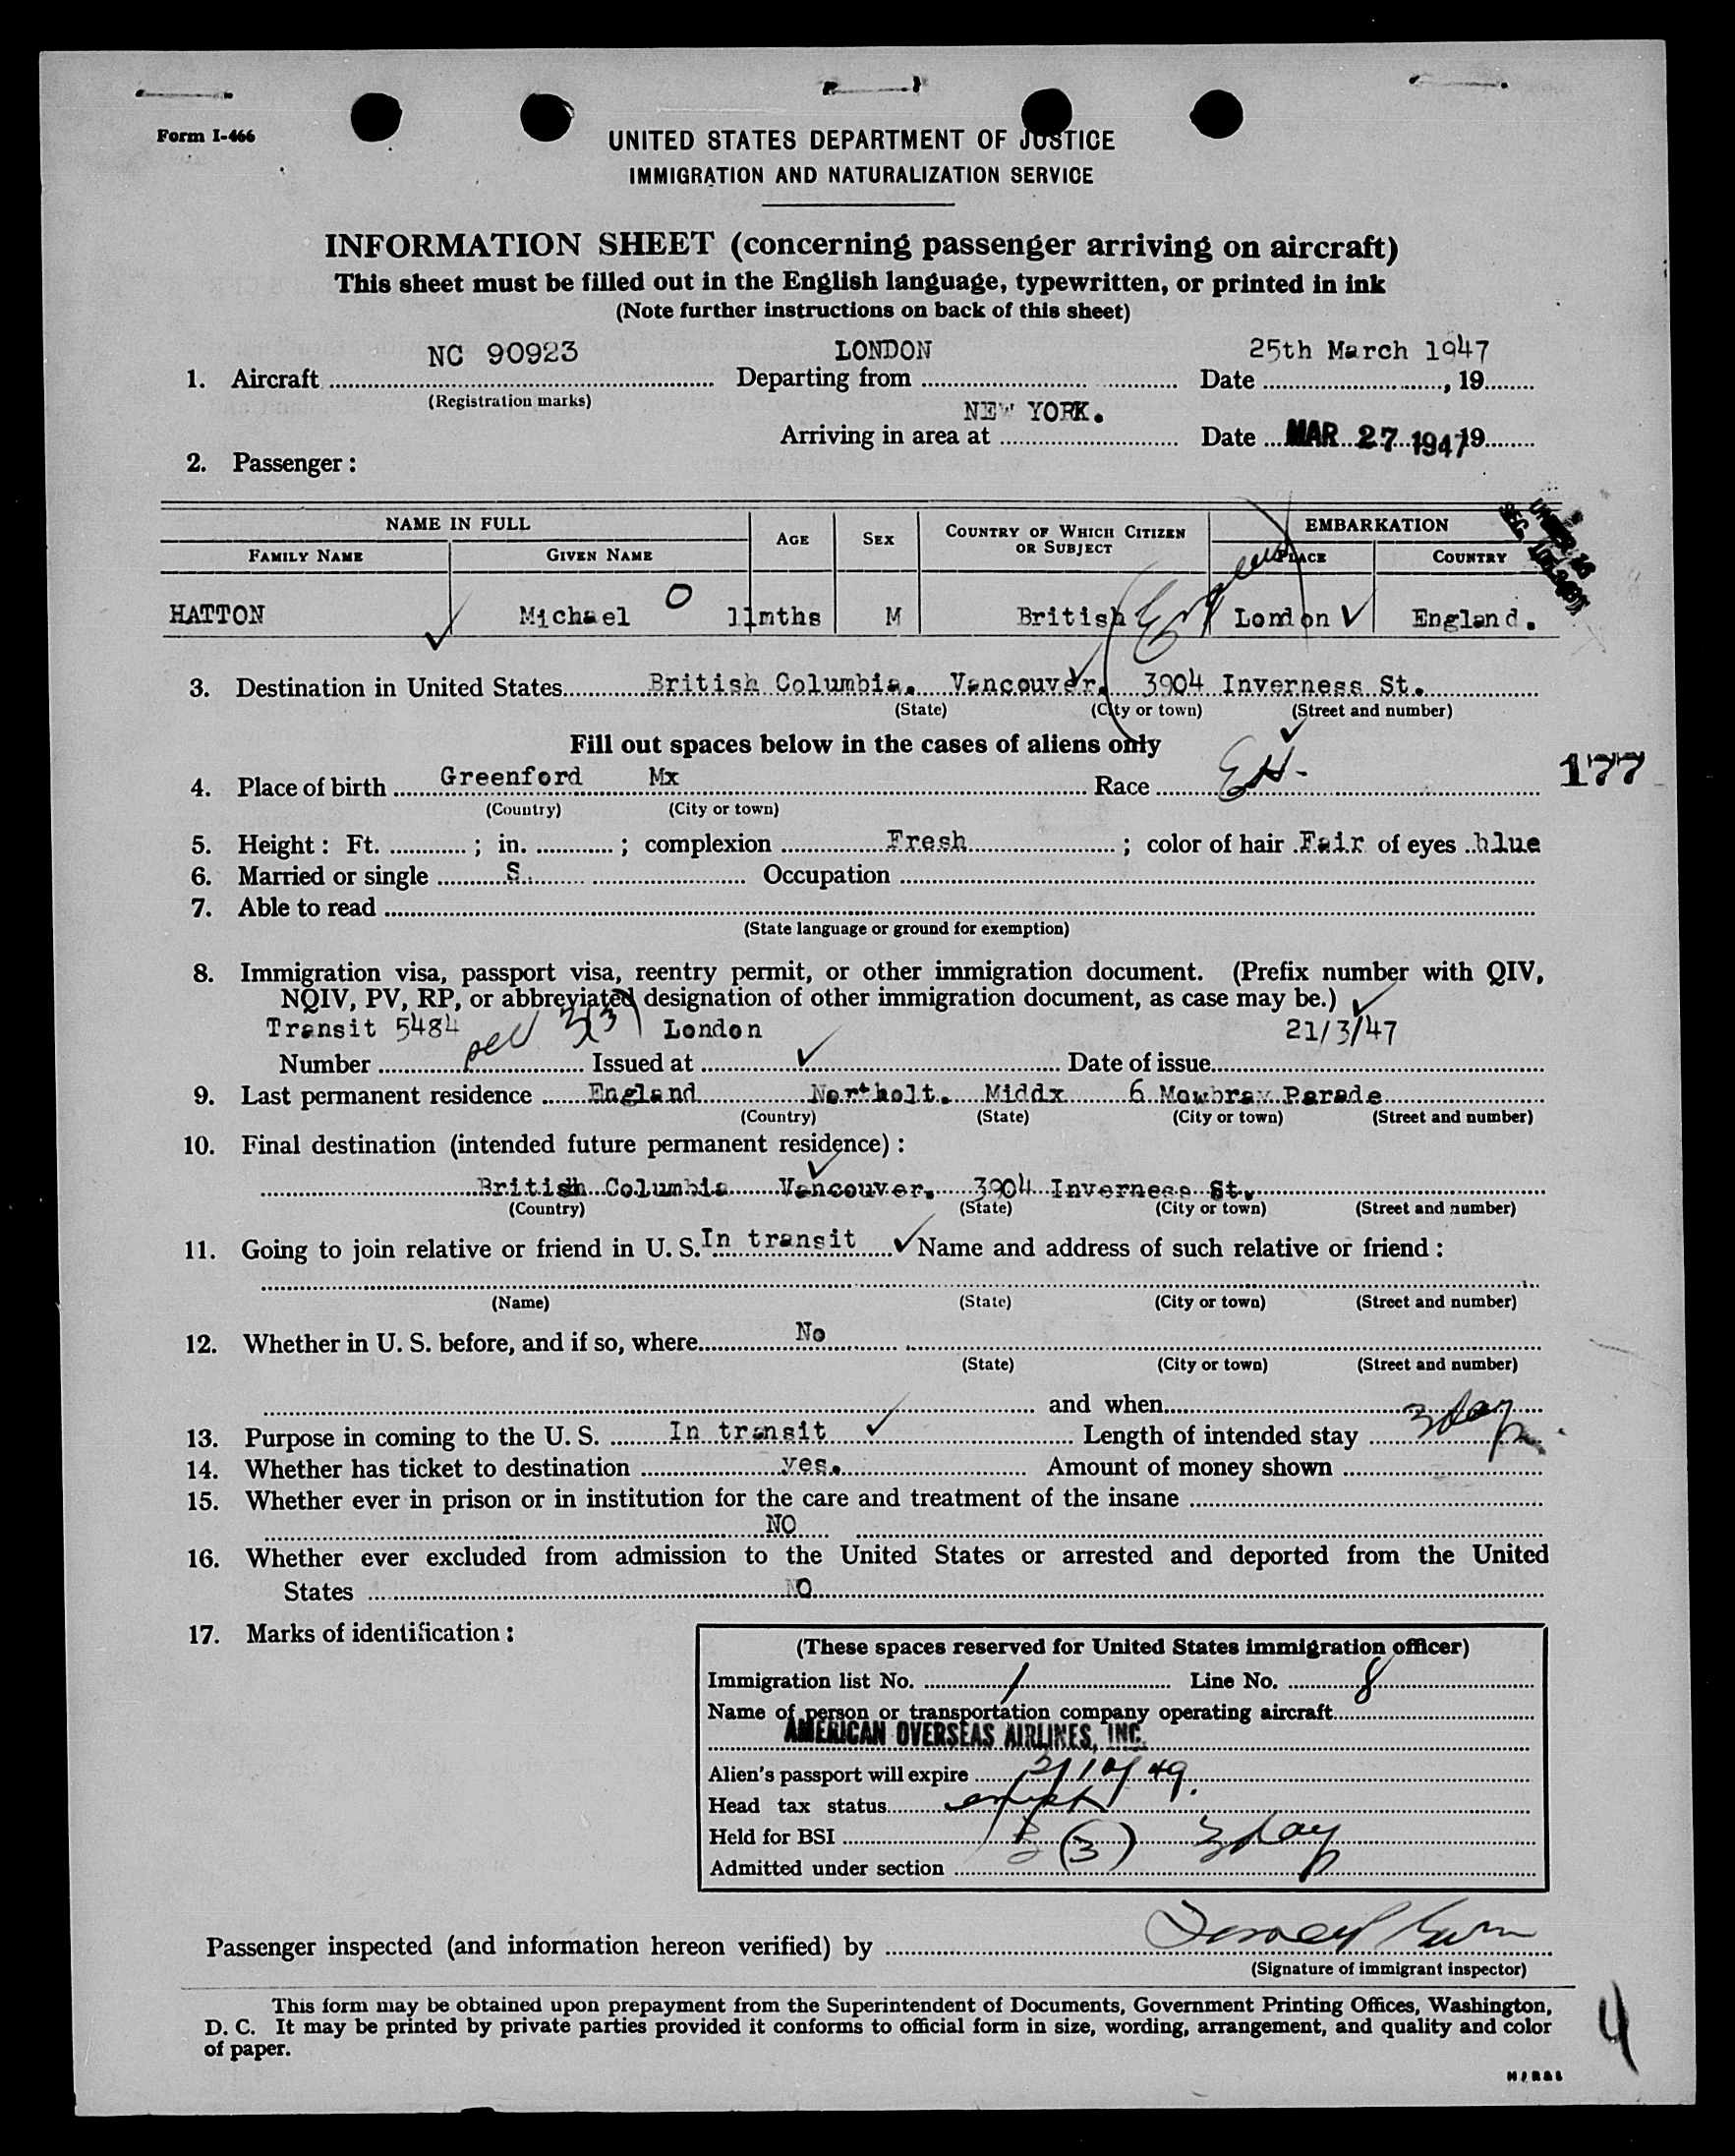 Form I-466
UNITED STATES DEPARTMENT OF JUSTICE
IMMIGRATION AND NATURALIZATION SERVICE
INFORMATION SHEET (concerning passenger arriving on aircraft)
This sheet must be filled out in the English language, typewritten, or printed in ink
(Note further instructions on back of this sheet)
NC 90923 LONDON 25th March 1947
1. Aircraft Departing from Date , 19
(Registration marks)
NEW YORK.
Arriving in area at Date MAR 27 1947 19
2. Passenger:
NAME IN FULL AGE SEX COUNTRY OF WHICH CITIZEN OR SUBJECT EMBARKATION
FAMILY NAME GIVEN NAME PLACE COUNTRY
HATTON Michael 0 11mths M British London England.
3. Destination in United States British Columbia. Vancouver. 3904 Inverness St.
(State) (City or town) (Street and number)
Fill out spaces below in the cases of aliens only
177
4. Place of birth Greenford Mx Race
(Country) (City or town)
5. Height: Ft. ; in. ; complexion Fresh ; color of hair Fair of eyes blue
6. Married or single S. Occupation
7. Able to read
(State language or ground for exemption)
8. Immigration visa, passport visa, reentry permit, or other immigration document. (Prefix number with QIV,
NQIV, PV, RP, or abbreviated designation of other immigration document, as case may be.)
Transit 5484 London 21/3/47
Number Issued at Date of issue
9. Last permanent residence England Northolt. Middx 6 Mowbray Parade
(Country) (State) (City or town) (Street and number)
10. Final destination (intended future permanent residence):
British Columbia Vancouver. 3904 Inverness St.
(Country) (State) (City or town) (Street and number)
11. Going to join relative or friend in U. S. In transit Name and address of such relative or friend:
(Name) (State) (City or town) (Street and number)
12. Whether in U. S. before, and if so, where No
(State) (City or town) (Street and number)
and when
13. Purpose in coming to the U. S. In transit Length of intended stay 3 days
14. Whether has ticket to destination yes. Amount of money shown
15. Whether ever in prison or in institution for the care and treatment of the insane
NO
16. Whether ever excluded from admission to the United States or arrested and deported from the United
States NO
17. Marks of identification:
(These spaces reserved for United States immigration officer)
Immigration list No. 1 Line No. 8
Name of person or transportation company operating aircraft
AMERICAN OVERSEAS AIRLINES, INC.
Alien's passport will expire
Head tax status
Held for BSI
Admitted under section (3) 3 days
Passenger inspected (and information hereon verified) by
(Signature of immigrant inspector)
This form may be obtained upon prepayment from the Superintendent of Documents, Government Printing Offices, Washington,
D. C. It may be printed by private parties provided it conforms to official form in size, wording, arrangement, and quality and color
of paper.
4